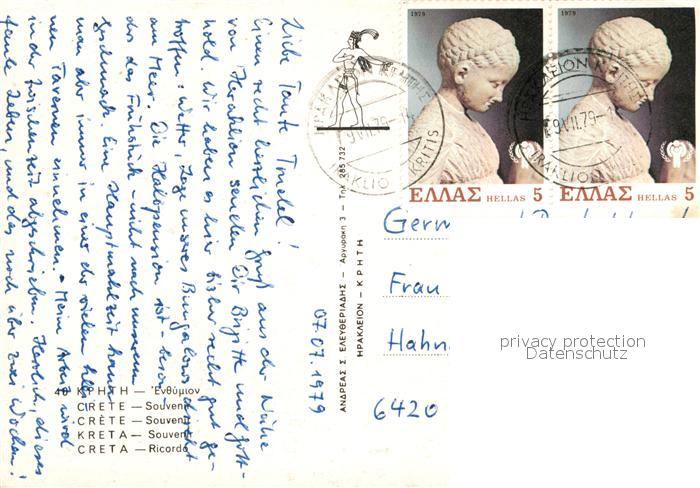 Liebe Tante Trudel!
Einen recht herzlichen Gruß aus der Nähe
von Heraklion senden Dir Birgitte und Gott-
hold. Wir haben es hier bisher recht gut ge-
troffen: Wetter, Lage unseres Bungalows direkt
am Meer. Die Halbpension ist - beson
ders das Frühstück - nicht nach unserem
Geschmack. Eine Hauptmahlzeit kann
man aber immer in einer der vielen klei
nen Tavernen einnehmen. - Meine Arbeit wird
in der Zwischenzeit abgeschrieben. Herrlich, dieses
Leben, und das noch über zwei Wochen!
07.07.1979
ΚΡΗΤΗ — Ἐνθύμιον
CRETE — Souvenir
CRÈTE — Souvenir
KRETA — Souvenir
CRETA — Ricordo
ΑΝΔΡΕΑΣ Σ. ΕΛΕΥΘΕΡΙΑΔΗΣ — Αργυράκη 3 — Τηλ. 285 732
ΗΡΑΚΛΕΙΟΝ - ΚΡΗΤΗ
1979
ΕΛΛΑΣ HELLAS 5
1979
ΕΛΛΑΣ HELLAS 5
ΗΡΑΚΛΕΙΟΝ ΚΡΗΤΗΣ
IRAKLIO KRITIS
Germ
Frau
Hahn
6420
privacy protection
Datenschutz